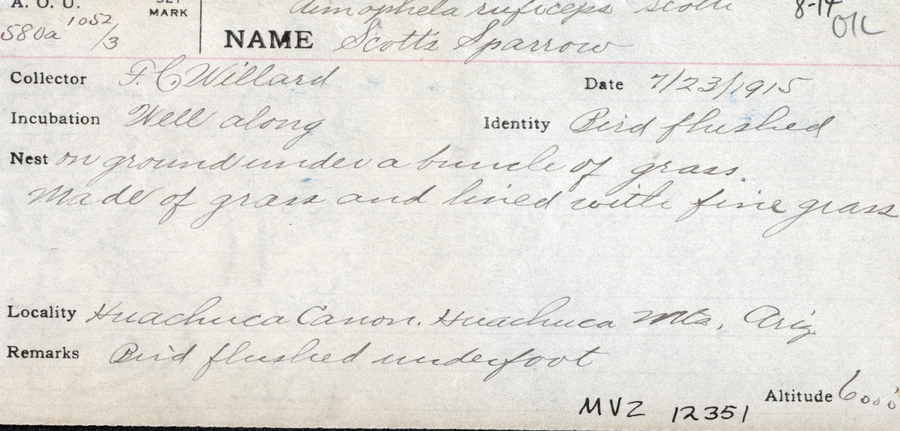 A. O. U. SET MARK Aimophela ruficeps scotti 8-14
580a 1052/3 NAME Scotts Sparrow OK
Collector F. C. Willard Date 7/23/1915
Incubation Well along Identity Bird flushed
Nest on ground under a bunch of grass.
Made of grass and lined with fine grass
Locality Huachuca Canon. Huachuca Mts, Ariz
Remarks Bird flushed underfoot
Altitude 6000'
MVZ 12351